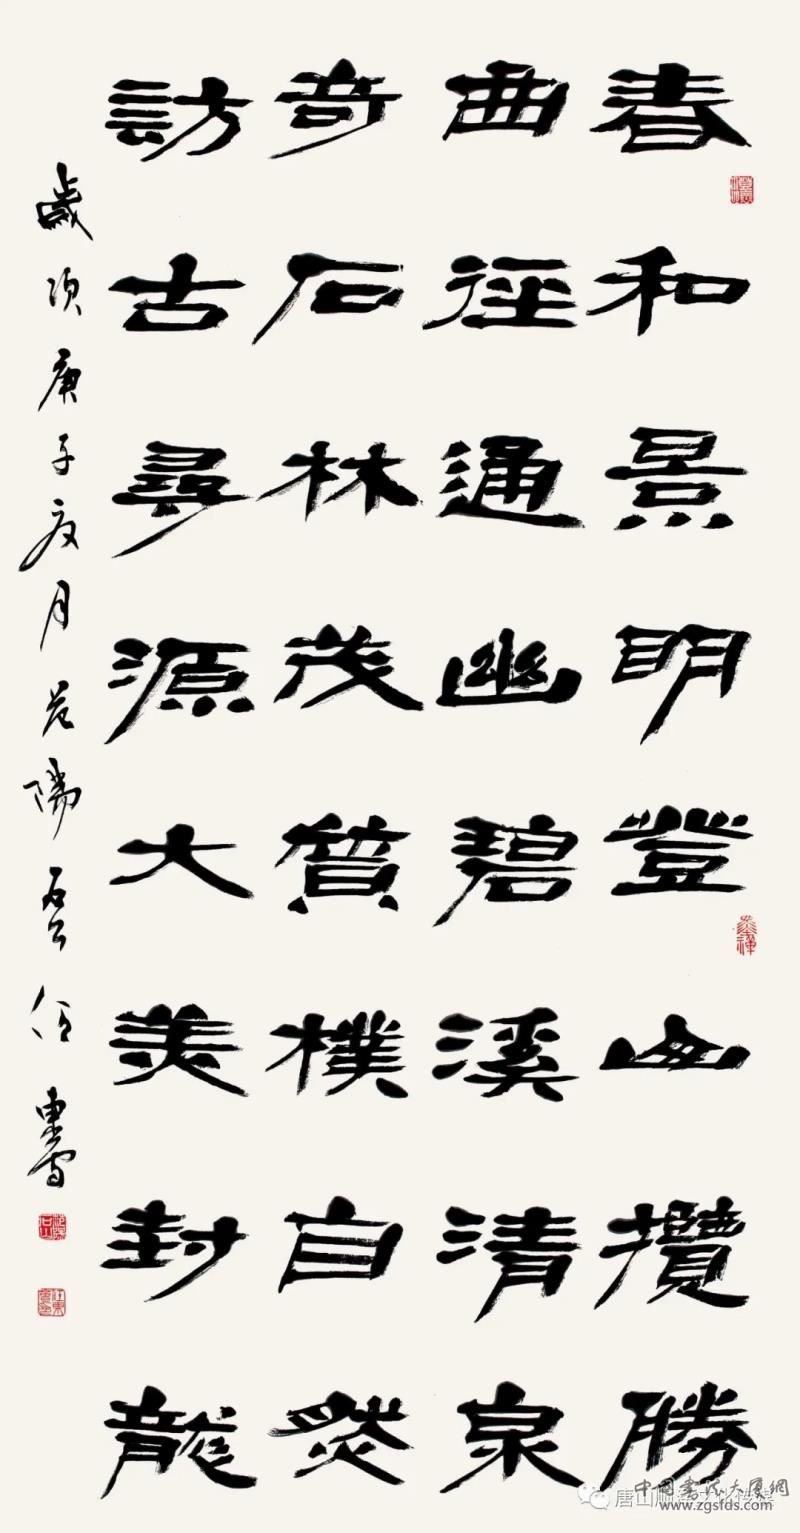 春和景明登山攬勝
曲徑通幽碧溪清泉
奇石林茂質樸自然
訪古尋源大美封龍
歲次庚子夏月
中国書法大厦網
www.zgsfds.com